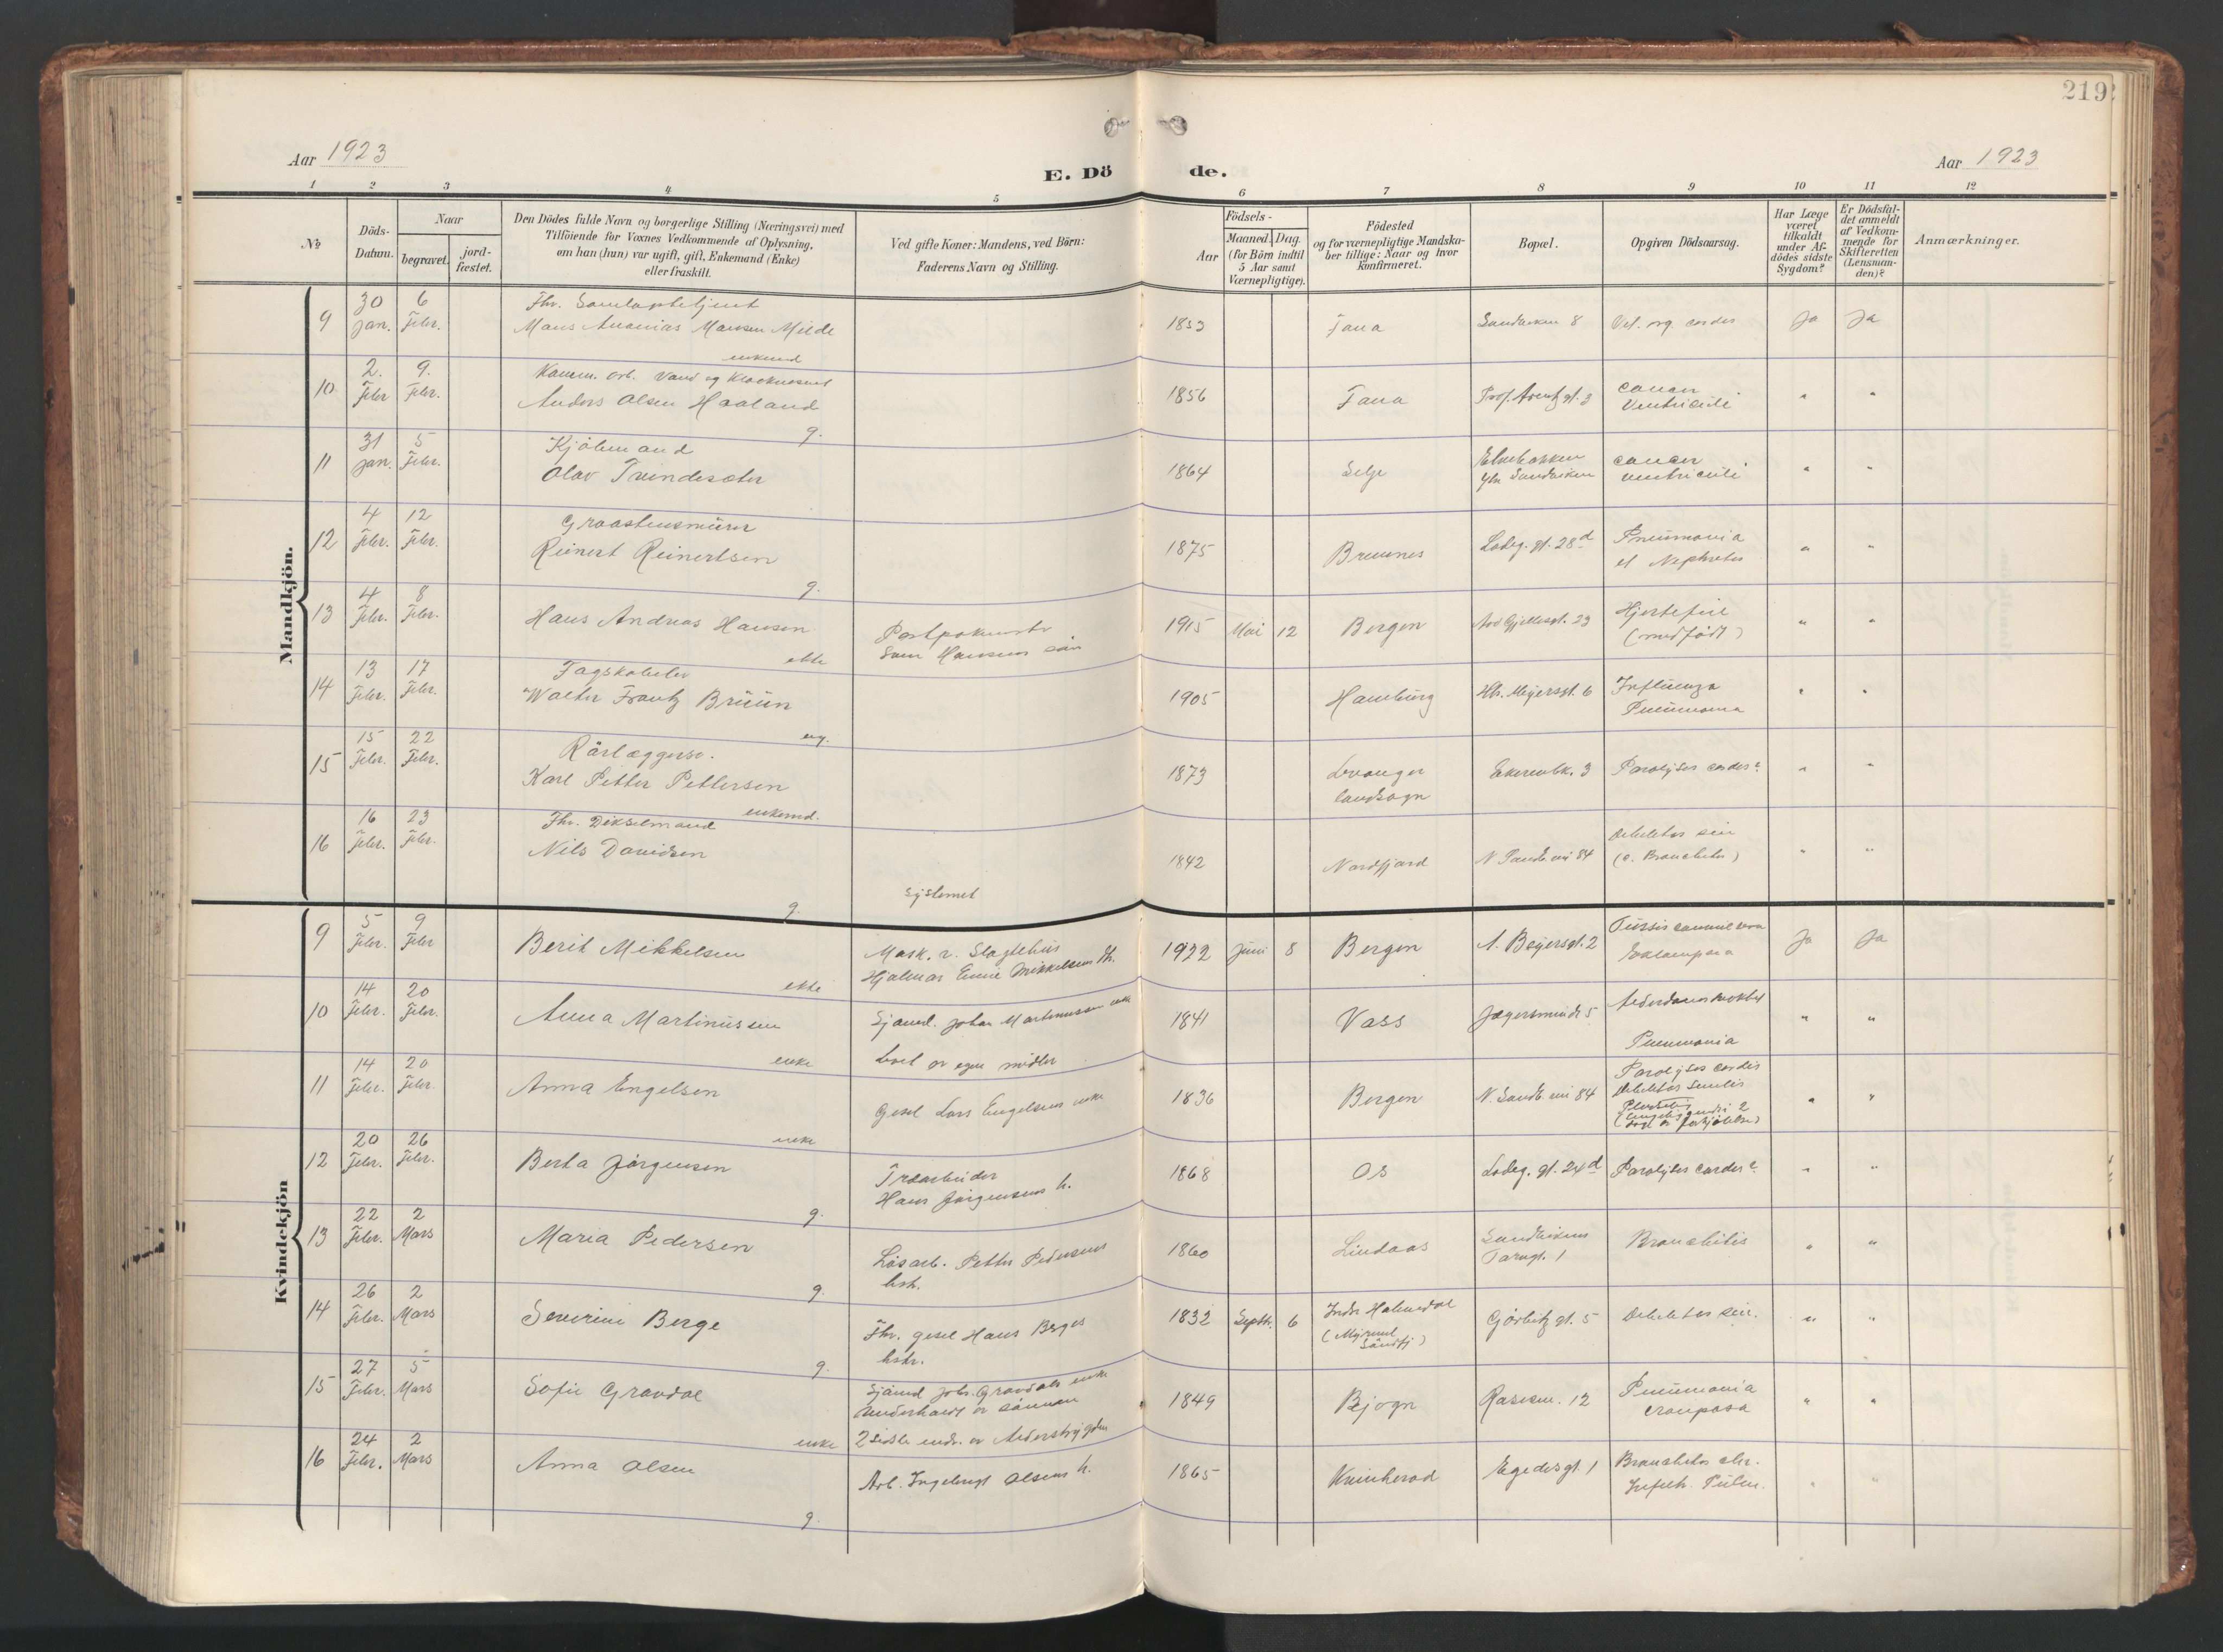 219
Aar 1923
E. Dö
de.
Aar 1923
1 2 3 4 5 6 7 8 9 10 11 12
№
Döds-
Datum.
Naar
begravet.
jord-
fæstet.
Den Dödes fulde Navn og borgerlige Stilling (Næringsvei) med
Tilföiende for Voxnes Vedkommende af Oplysning,
om han (hun) var ugift, gift, Enkemand (Enke)
eller fraskilt.
Ved gifte Koner: Mandens, ved Börn:
Faderens Navn og Stilling.
Födsels-
Aar
Maaned.
Dag.
(for Börn indtil
5 Aar samt
Værnepligtige).
Födested
og for værnepligtige Mandska-
ber tillige: Naar og hvor
konfirmeret.
Bopæl.
Opgiven Dödsaarsag.
Har Læge
været
tilkaldt
under Af-
dödes sidste
Sygdom?
Er Dödsfal-
det anmeldt
af Vedkom-
mende for
Skifteretten
(Lensman-
den)?
Anmærkninger.
Mandkjön.
9
30 6
Jan. Febr.
Fhv.
Mons Ananias Monsen Milde
1853
Fana
Sandviken 8
Vit. org. cordis
Ja Ja
enkemd
10
2. 9.
Febr Febr.
Komm. arb. Vand og Kloakvesnet
Anders Olsen Haaland
g.
1856
Fana
Prof. Arentz gt. 3
cancer
Ventriculi
" "
11
31 5
Jan. Febr.
Kjölemand
Olav
1864
Selje
Sandviken
cancer
ventriculi
" "
12
4 12
Febr. Febr.
Graastensmürer
Reinert Reinertsen
g.
1875
Bremnes
Ladeg. gt. 28d
Pneumonia
et Nephritis
" "
13
4 8
Febr. Febr.
Hans Andreas Hansen
ekte
Postpakmstr
Hansens sön
1915 Mai 12
Bergen
23
Hjertefeil
(medfödt)
" "
14
13 17
Febr. Febr.
Fagskoleelev
Walter Frantz Brüün
ug.
1905
Hamburg
Hb. Meyersgt. 6
Influenza
Pneumonia
" "
15
15 22
Febr. Febr.
Rörlæggersv.
Karl Petter Pettersen
enkemd.
1873
Levanger
landsogn
Ekerenbk. 3
Paralyses cordis
" "
16
16 23
Febr. Febr.
Fhv. Dikselmand
Nils Davidsen
g.
1842
Nordfjord
N. Sandb. vei 84
Debilitas sen
(c. Bronchitis)
" "
systemet
Kvindekjön
9
5 9
Febr. Febr
Berit Mikkelsen
ekte
Mask. v. Slagtehüs
Hjalmar Emil Mikkelsens dt.
1922 Juni 8
Bergen
A. Beyersgt. 2
Tussis convulsiva
Eklampsia
Ja Ja
10
14 20
Febr. Febr.
Anna Martinüssen
enke
Sjömd. Johan Martinussens enke
Levet av egne midler
1841
Voss
Jægersminde 5
Pneumonia
" "
11
14 20
Febr. Febr.
Anna Engelsen
enke
Gesel Lars Engelsens enke
1836
Bergen
N. Sandb. vei 84
Paralyses cordis
Debilitas senilis
" "
12
20 26
Febr. Febr.
Berta Jörgensen
g.
Træarbeider
Hans Jörgensens h.
1868
Os
Ladeg. gt. 24d
Paralyses cordis
" "
13
22 2
Febr. Mars
Maria Pedersen
g.
Lösarb. Petter Pedersens
hstr.
1860
Lindaas
Sandviken
Torvgt. 1
Bronchitis
" "
14
26 2
Febr. Mars
Severine Berge
g.
Fhv. gesel Hans Berges
hstr.
1832 Septbr. 6
Indre Holmedal
Görbitz gt. 5
Debilitas sen.
" "
15
27 5
Febr. Mars
Sofie Gravdal
enke
Sjömd Johs. Gravdals enke
Underholdt av sönnen
2 sidste endr. av Alderstrygden
1849
Bejogn
12
Pneumonia
crouposa
" "
16
24 2
Febr. Mars
Anna Olsen
g.
Arb. Ingebrigt Olsens h.
1865
Kvinherad
Egedesgt. 1
Bronchitis chr.
Infiltr. Pulm.
" "